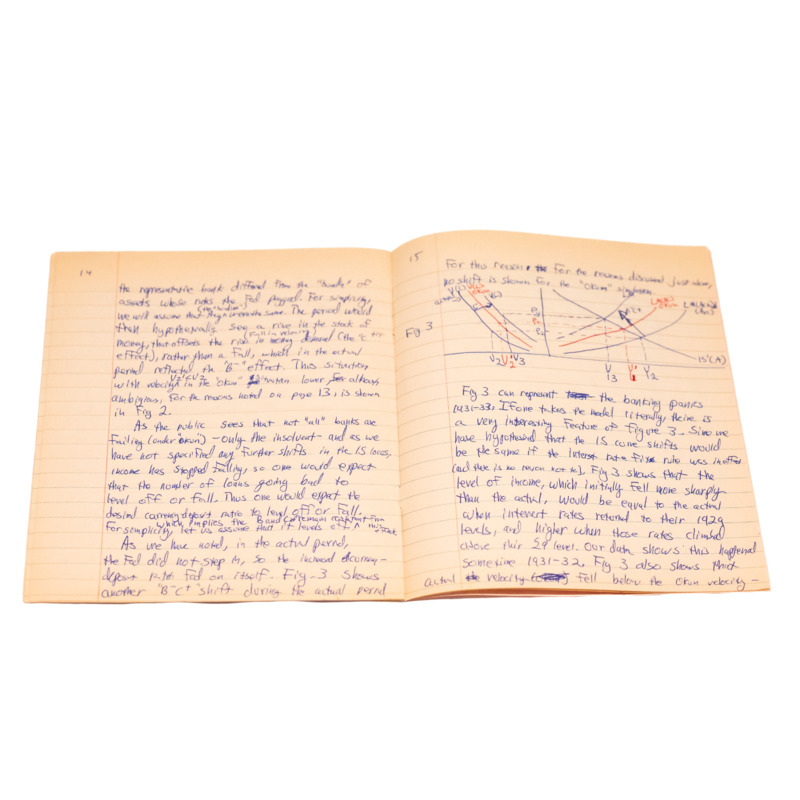 14
the representative bank differed from the "bundle" of
assets whose rates the Fed pegged. For simplicity,
we will assume that they were the same. The period would
then hypothetically see a rise in the stock of
(fall in velocity)
money, that offsets the rise in money demand (the
effect), rather than a fall, which in the actual
period reflected the "B-" effect. This situation
V2'<V2
with velocity in the "Okun" situation lower, although
ambigious, for the reasons noted on page 13, is shown
in Fig 2.
As the public sees that not "all" banks are
failing (under "Okun") - only the insolvent - and as we
have not specified any further shifts in the IS loans,
income has stopped falling, so one would expect
that the number of loans going bad to
level off or fall. Thus one would expect the
desired currency deposit ratio to level off or fall.
which implies the B and C remain constant from
For simplicity, let us assume that it levels off
As we have noted, in the actual period,
the Fed did not step in, so the increased currency-
deposit ratio fed on itself. Fig-3 shows
another "B-C+" shift during the actual period
15
For this reason, for the reasons discussed just above,
no shift is shown for the "Okun" situation.
Fig 3
V2 V2' V3
Y3 Y' Y2
IS'(A)
Fig 3 can represent the banking panics
1931-33. If one takes the model literally, there is
a very interesting feature of Figure 3. Since we
have hypothesised that the IS curve shifts would
be the same if the interest rate fixed rule was in effect
(and there is no reason not to), Fig 3 shows that the
level of income, which initially fell more sharply
than the actual, would be equal to the actual
when interest rates returned to their 1929
levels, and higher when those rates climbed
above their 29 level. Our data shows this happened
sometime 1931-32. Fig 3 also shows that
actual velocity fell below the Okun velocity -